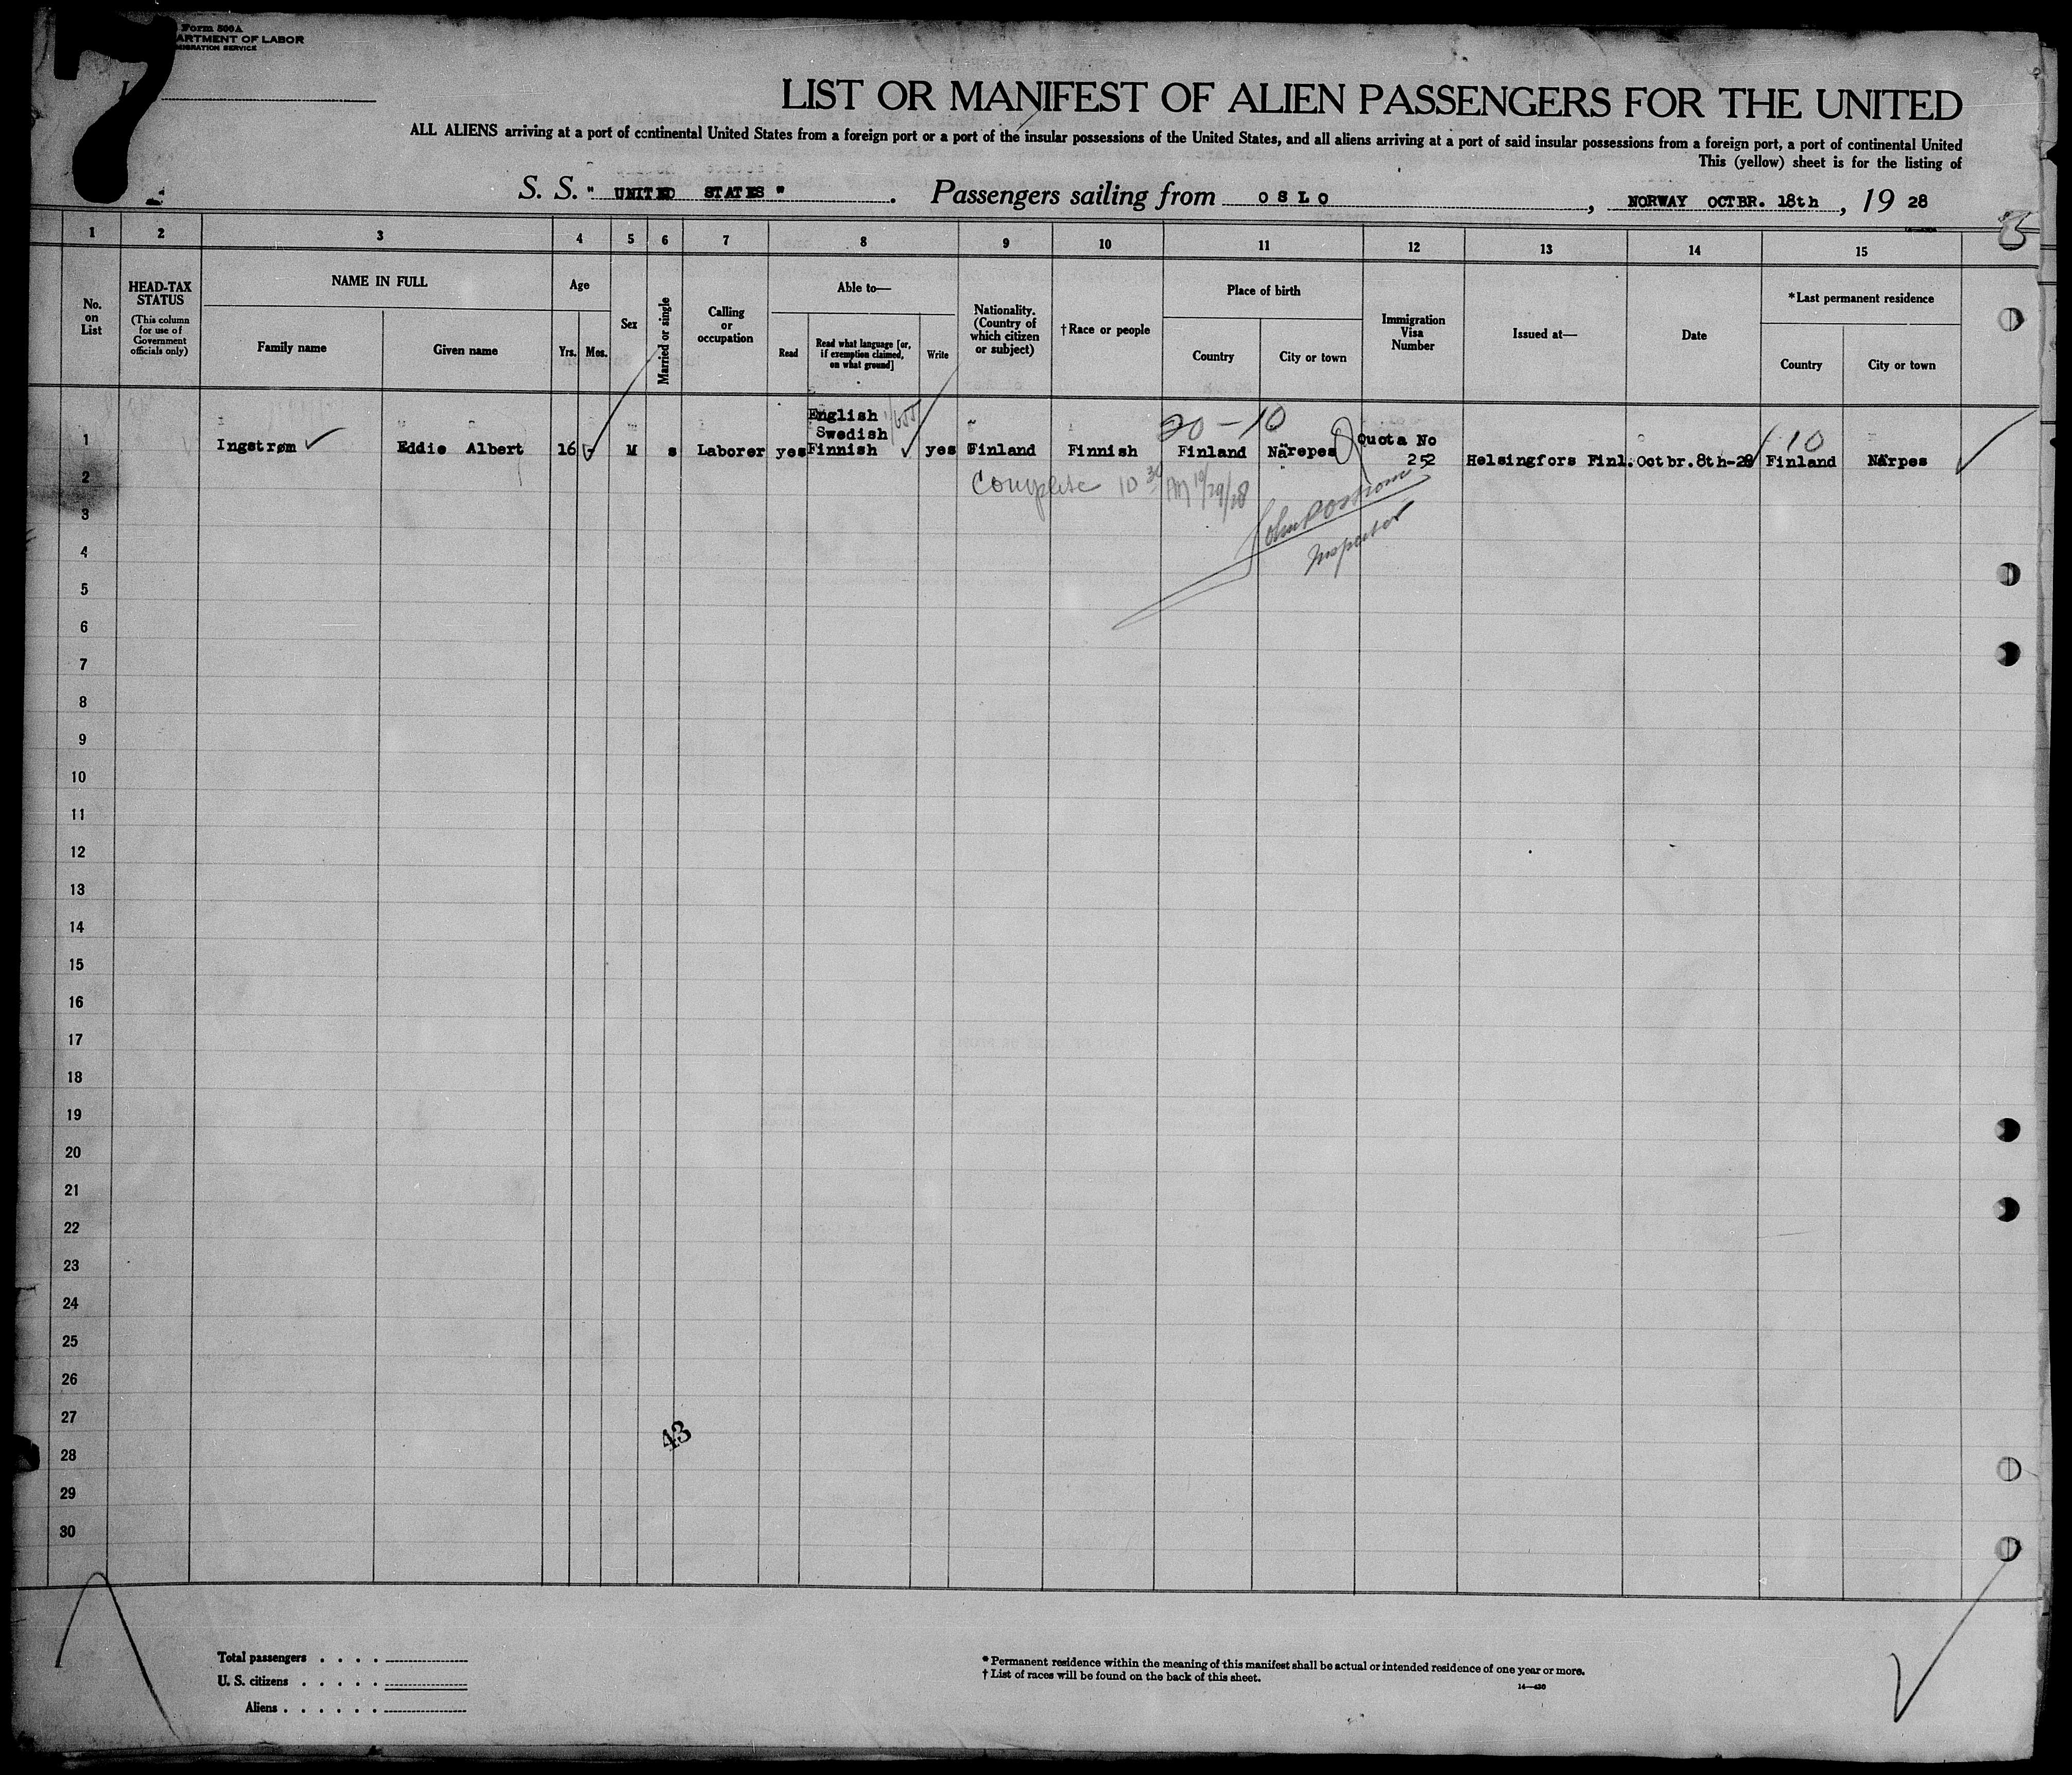 7
Form 500A
ARTMENT OF LABOR
MIGRATION SERVICE
LIST OR MANIFEST OF ALIEN PASSENGERS FOR THE UNITED
ALL ALIENS arriving at a port of continental United States from a foreign port or a port of the insular possessions of the United States, and all aliens arriving at a port of said insular possessions from a foreign port, a port of continental United
This (yellow) sheet is for the listing of
S. S. " UNITED STATES ". Passengers sailing from OSLO, NORWAY OCTBR. 18th, 19 28
1 2 3 4 5 6 7 8 9 10 11 12 13 14 15
No. on List
HEAD-TAX STATUS
(This column for use of Government officials only)
NAME IN FULL
Family name
Given name
Age
Yrs.
Mos.
Sex
Married or single
Calling or occupation
Able to—
Read
Read what language [or, if exemption claimed, on what ground]
Write
Nationality. (Country of which citizen or subject)
†Race or people
Place of birth
Country
City or town
Immigration Visa Number
Issued at—
Date
*Last permanent residence
Country
City or town
English
Swedish
20-10
Quota No
10
1 Ingstrøm Eddie Albert 16 - M s Laborer yes Finnish yes Finland Finnish Finland Närepes 252 Helsingfors Finl. Octbr.8th-28 Finland Närpes
2
Complete 10 30 AM 10/29/28
3
Inspector
4
5
6
7
8
9
10
11
12
13
14
15
16
17
18
19
20
21
22
23
24
25
26
27
43
28
29
30
Total passengers . . . .
U. S. citizens . . . . .
Aliens . . . . . .
* Permanent residence within the meaning of this manifest shall be actual or intended residence of one year or more.
† List of races will be found on the back of this sheet.
14—430